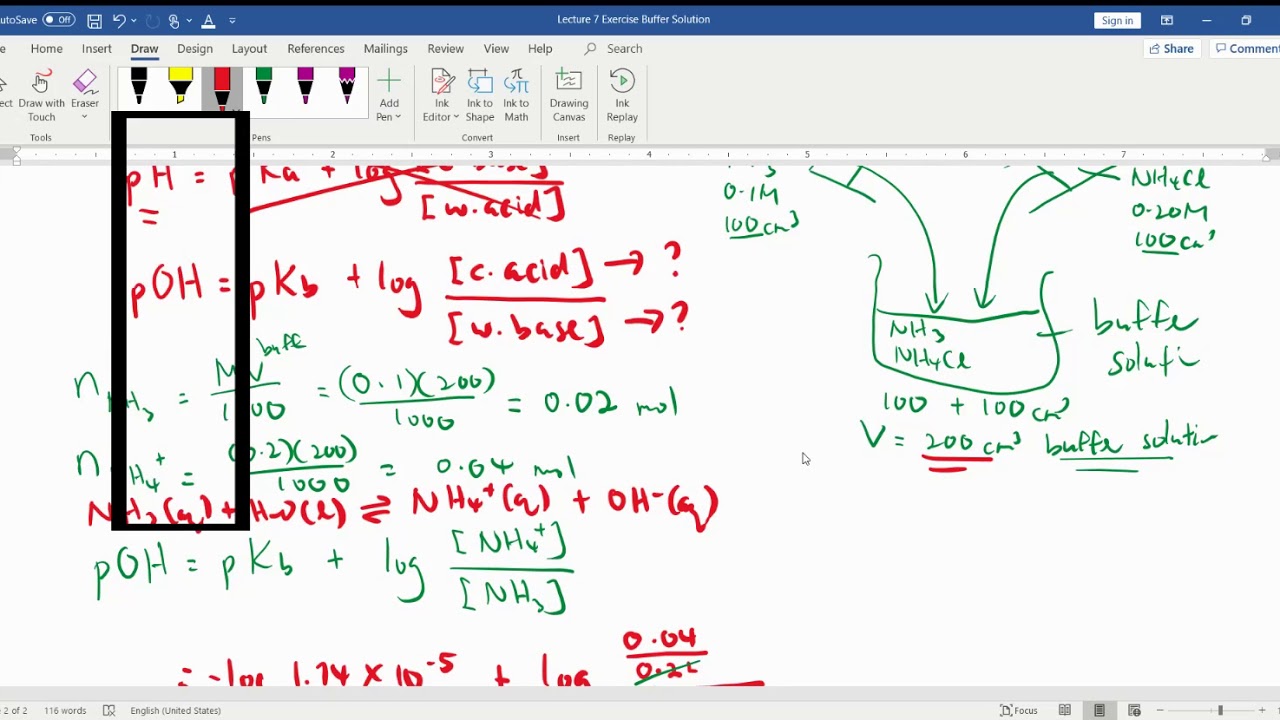 AutoSave Off Lecture 7 Exercise Buffer Solution Sign in
Home Insert Draw Design Layout References Mailings Review View Help Search Share Comment
Draw with Touch Eraser Add Pen Ink Editor Ink to Shape Ink to Math Drawing Canvas Ink Replay
Tools Pens Convert Insert Replay
1 2 3 4 5 6 7
pH = pKa + log
[w.acid]
pOH = pKb + log [c.acid] → ?
[w.base] → ?
buffe
n NH3 = MV/1000 = (0.1)(200)/1000 = 0.02 mol
n NH4+ = (0.2)(200)/1000 = 0.04 mol
NH3(aq) + H2O(l) ⇌ NH4+(aq) + OH-(aq)
pOH = pKb + log [NH4+]/[NH3]
= -log 1.74 × 10-5 + log 0.04
0.1M
100cm3
NH4Cl
0.20M
100cm3
NH3
NH4Cl
buffe
soluti
100 + 100 cm3
V = 200 cm3 buffe solution
2 of 2 116 words English (United States) Focus